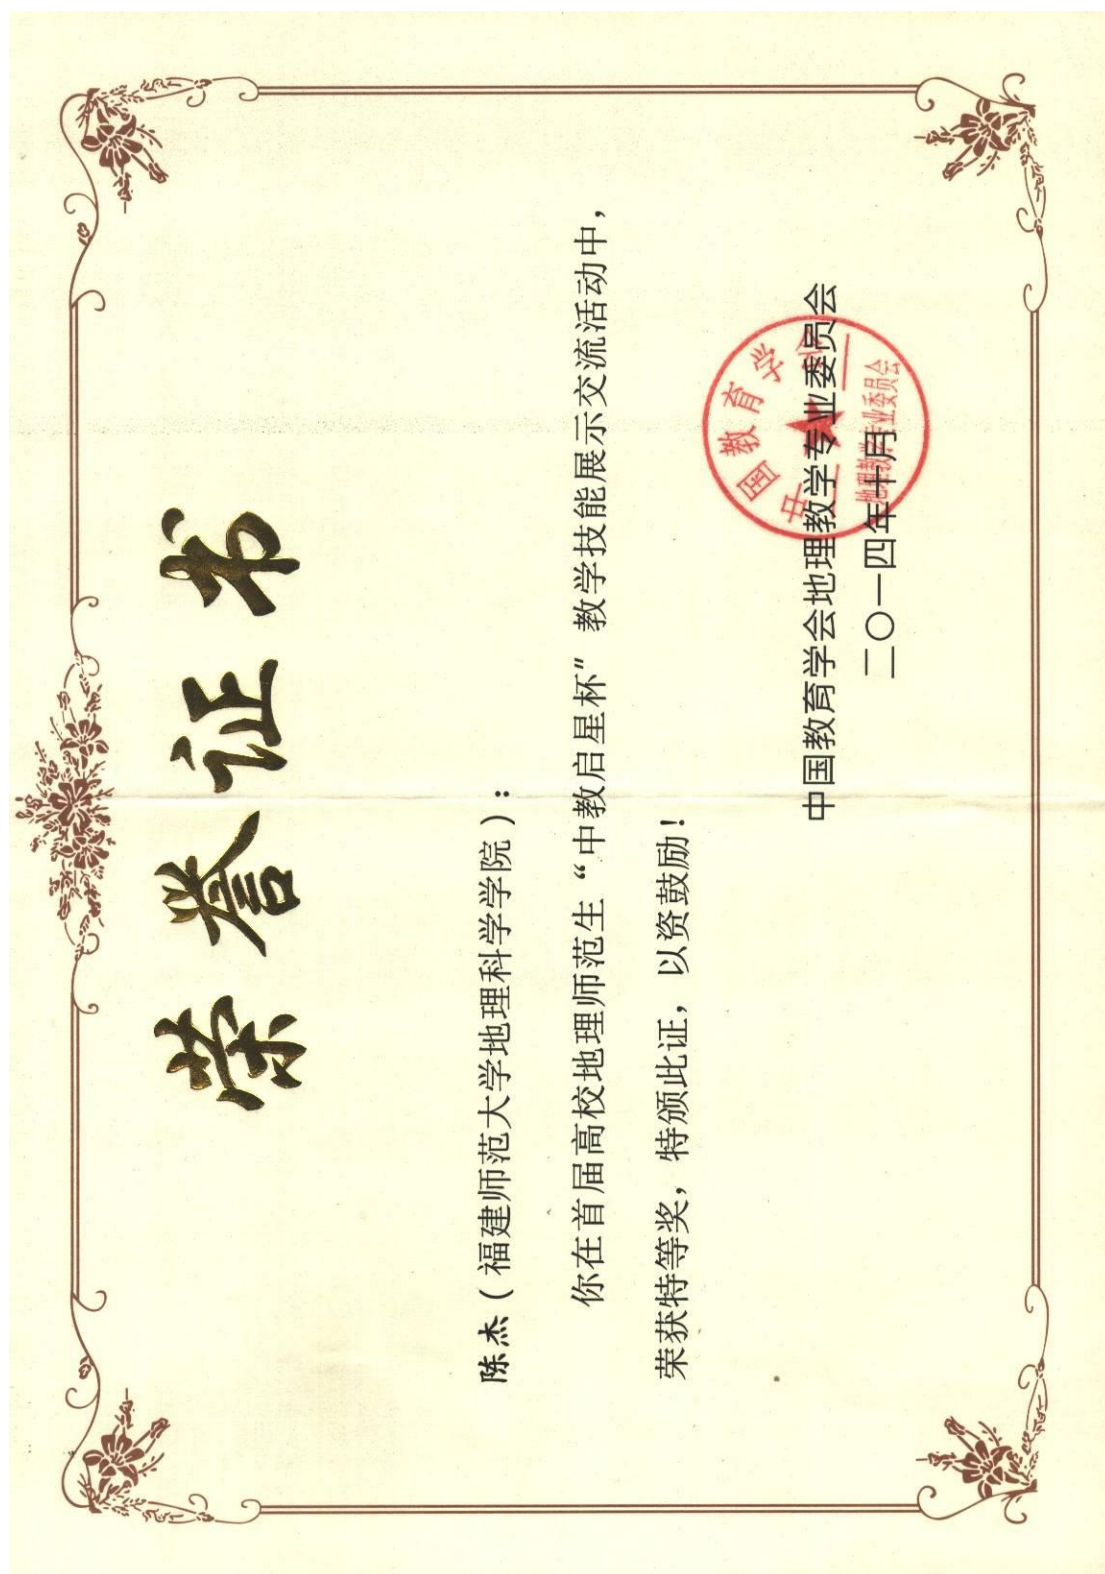 荣誉证书
陈杰（福建师范大学地理科学学院）：
你在首届高校地理师范生“中教启星杯”教学技能展示交流活动中，
荣获特等奖，特颁此证，以资鼓励！
中国教育学会地理教学专业委员会
二〇一四年十月
中国教育学会
地理教学专业委员会